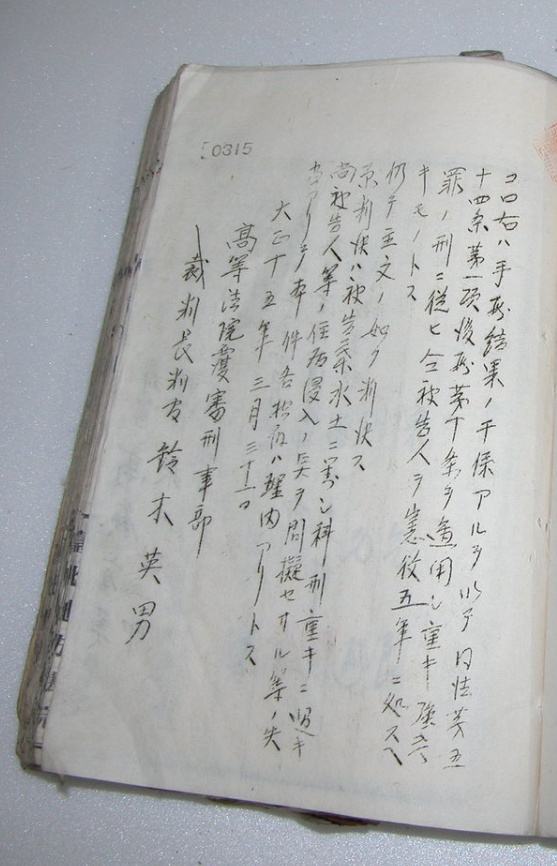 0315
右ハ手段結果ノ干係アルヲ以テ同法第五
十四条第一項後段第十条ヲ適用シ重キ強盗
罪ノ刑ニ従ヒ 被告人ヲ懲役五年ニ処スヘ
キモノトス
仍テ主文ノ如ク判決ス
原判決ハ被告 ニ対シ科刑重キニ過キ
尚被告人等ノ住居侵入ノ点ヲ問擬セサル等ノ失
当アリテ本件各控訴ハ理由アリトス
大正十五年三月三十一日
高等法院覆審刑事部
裁判長判官 鈴木英男